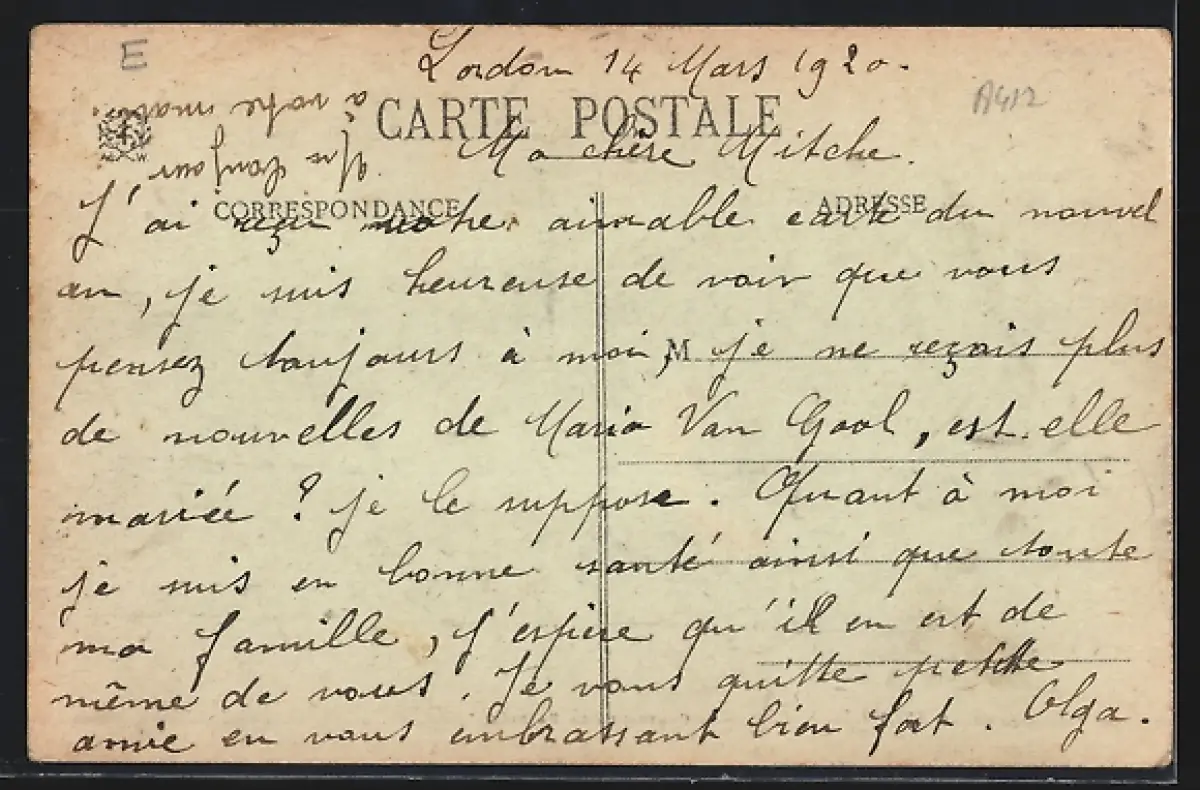 E
Lordon 14 Mars 1920.
A412
Un bonjour
à votre
CARTE POSTALE
Ma chère Mitche.
CORRESPONDANCE
ADRESSE
J'ai reçu votre aimable carte du nouvel
an, je suis heureuse de voir que vous
pensez toujours à moi, je ne reçois plus
M
de nouvelles de Maria Van Gool, est-elle
mariée ? je le suppose. Quant à moi
je suis en bonne santé ainsi que toute
ma famille, j'espère qu'il en est de
même de vous. Je vous quitte petite
amie en vous embrassant bien fort. Olga.